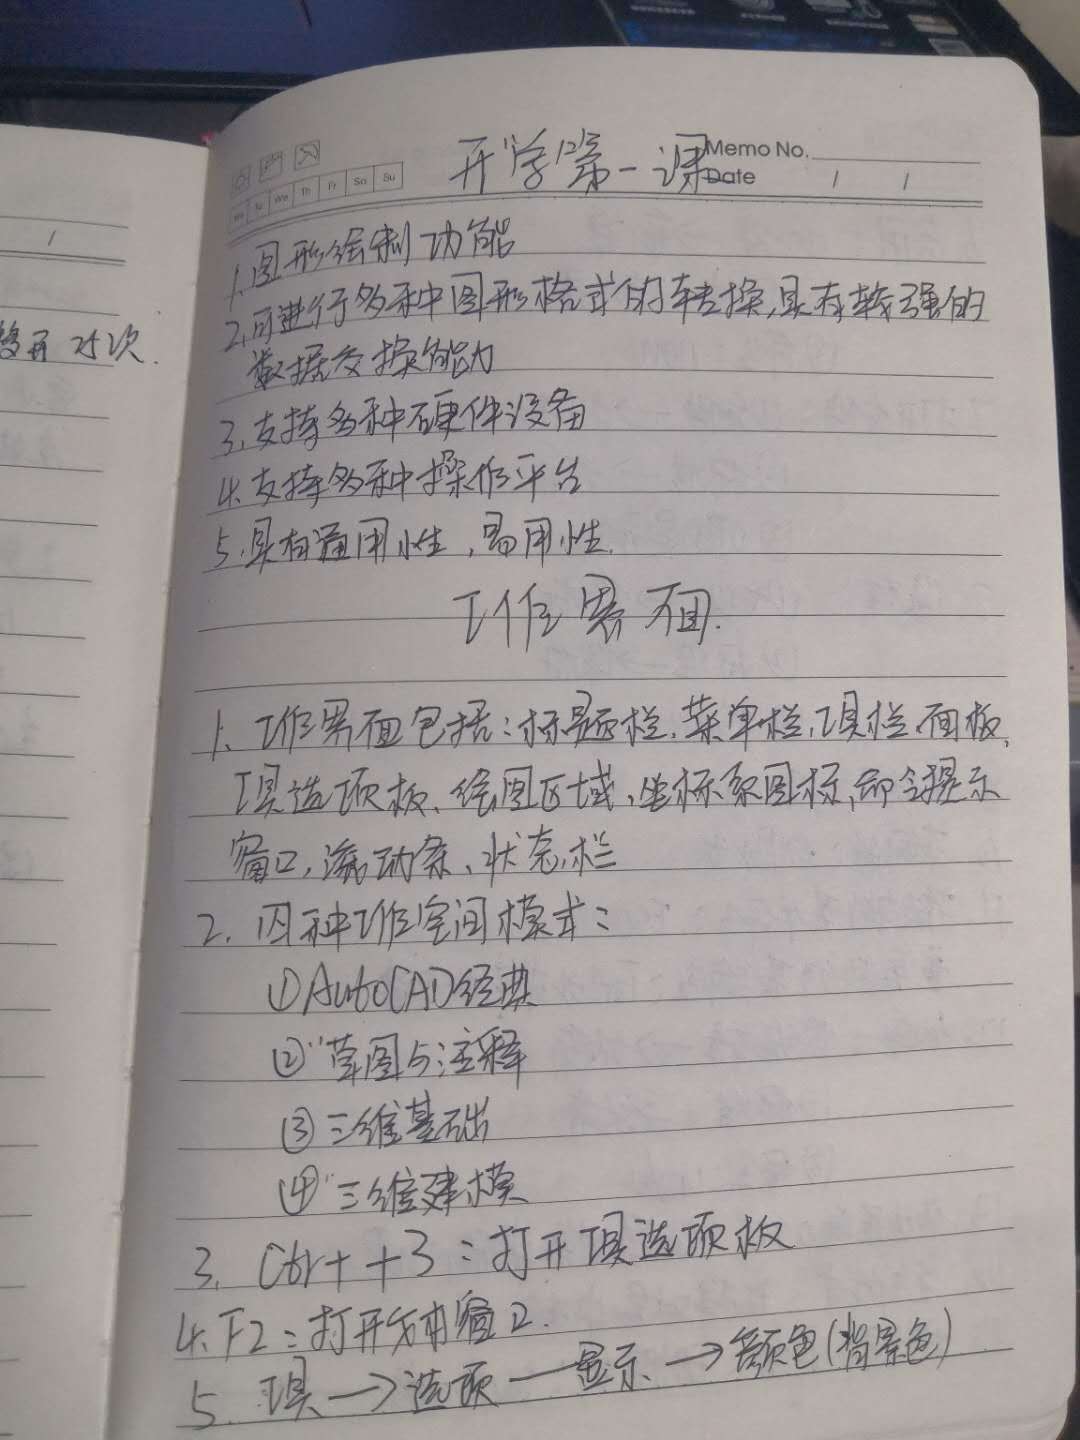 Memo No.
Date
Mo Tu We Th Fr Sa Su
开学第一课
1.图形绘制功能
2.可进行多种图形格式的转换,具有较强的
数据交换能力
3.支持多种硬件设备
4.支持多种操作平台
5.具有通用性,易用性.
工作界面.
1、工作界面包括:标题栏、菜单栏、工具栏、面板、
工具选项板、绘图区域、坐标系图标、命令提示
窗口,滚动条、状态栏
2.四种工作空间模式:
①AutoCAD经典
②"草图与注释
③三维基础
④"三维建模
3. Ctrl++3:打开工具选项板
4.F2:打开文本窗口.
5.工具→选项—显示→颜色(背景色)
开25次.